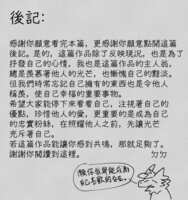 後記:
感謝你願意看完本篇，更感謝你願意點開這篇
後記。是的，這篇作品除了反映現況，也是為了
抒發自己的心情。我也是這篇作品的主人翁，
總是羨慕著他人的光芒，也慚愧自己的黯淡。
但我們時常忘記自己擁有的東西也是令他人
稱羨，使自己幸福的重要事物。
希望大家能停下來看看自己，注視著自己的
優點，珍惜他人的愛，更重要的是成為自己
的忠實粉絲，在照耀他人之前，先讓光芒
充斥著自己。
若這篇作品能讓你感到共鳴，那就足夠了。
謝謝你閱讀到這裡。
ㄉㄉ
願你也能成為
自己喜歡的自己